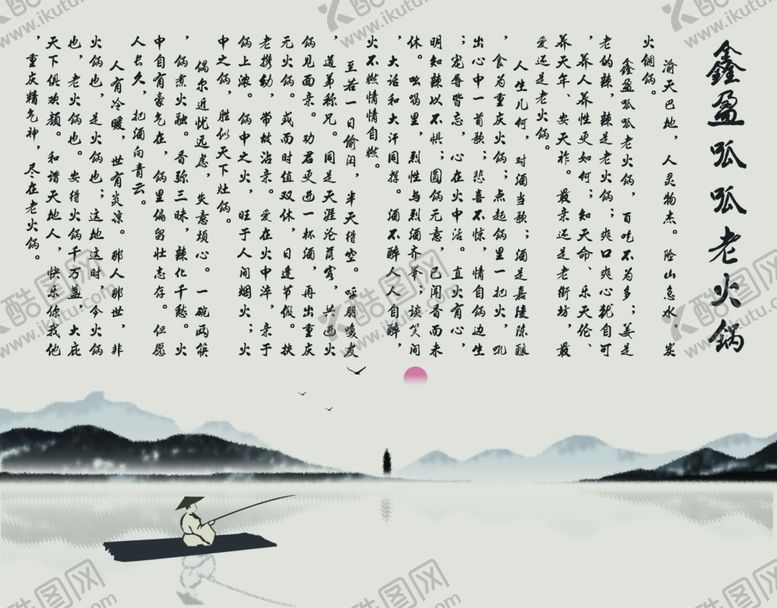 鑫盈呱呱老火锅
渝天巴地，人灵物杰。险山急水，炭
火铜锅。
鑫盈呱呱老火锅，百吃不为多；姜是
老的辣，辣是老火锅；爽口爽心犹自可
，养人养性更如何；知天命、乐天伦、
养天年、安天祚。最亲还是老街坊，最
爱还是老火锅。
人生几何，对酒当歌；酒是嘉陵陈酿
，食为重庆火锅；点起锅里一把火，吼
出心中一首歌；悲喜不惊，情自锅边生
；宠辱皆忘，心在火中活。直火有心，
明知辣以不惧；圆锅元意，已闻香而来
休。吆喝里，烈性与烈酒齐举；谈笑间
，大话和大汗同挥。酒不醉人人自醉，
火不燃情情自燃。
至若一日偷闲，半天得空。呼朋唤友
，道弟称兄。同是天涯沦落客，共进火
锅见面亲。劝君更进一杯酒，再出重庆
元火锅。或而时值双休，日逢节假。扶
老携幼，带故沾亲。爱在火中淬，亲于
锅上浓。锅中之火，旺于人间烟火；火
中之锅，胜似天下灶锅。
偶尔近忧远虑，失意烦心。一碗两筷
，锅煮火融。香弥三昧，辣化千愁。火
中自有豪气在，锅里偏多壮志存。但愿
人长久，把酒向青云。
人有冷暖，世有炎凉。那人那世，非
火锅也，是火锅也；这地这时，今火锅
也，老火锅也。安得火锅千万盆，大庇
天下俱欢颜。和谐天地人，快乐你我他
，重庆精气神，尽在老火锅。
酷图网
www.ikutu.com